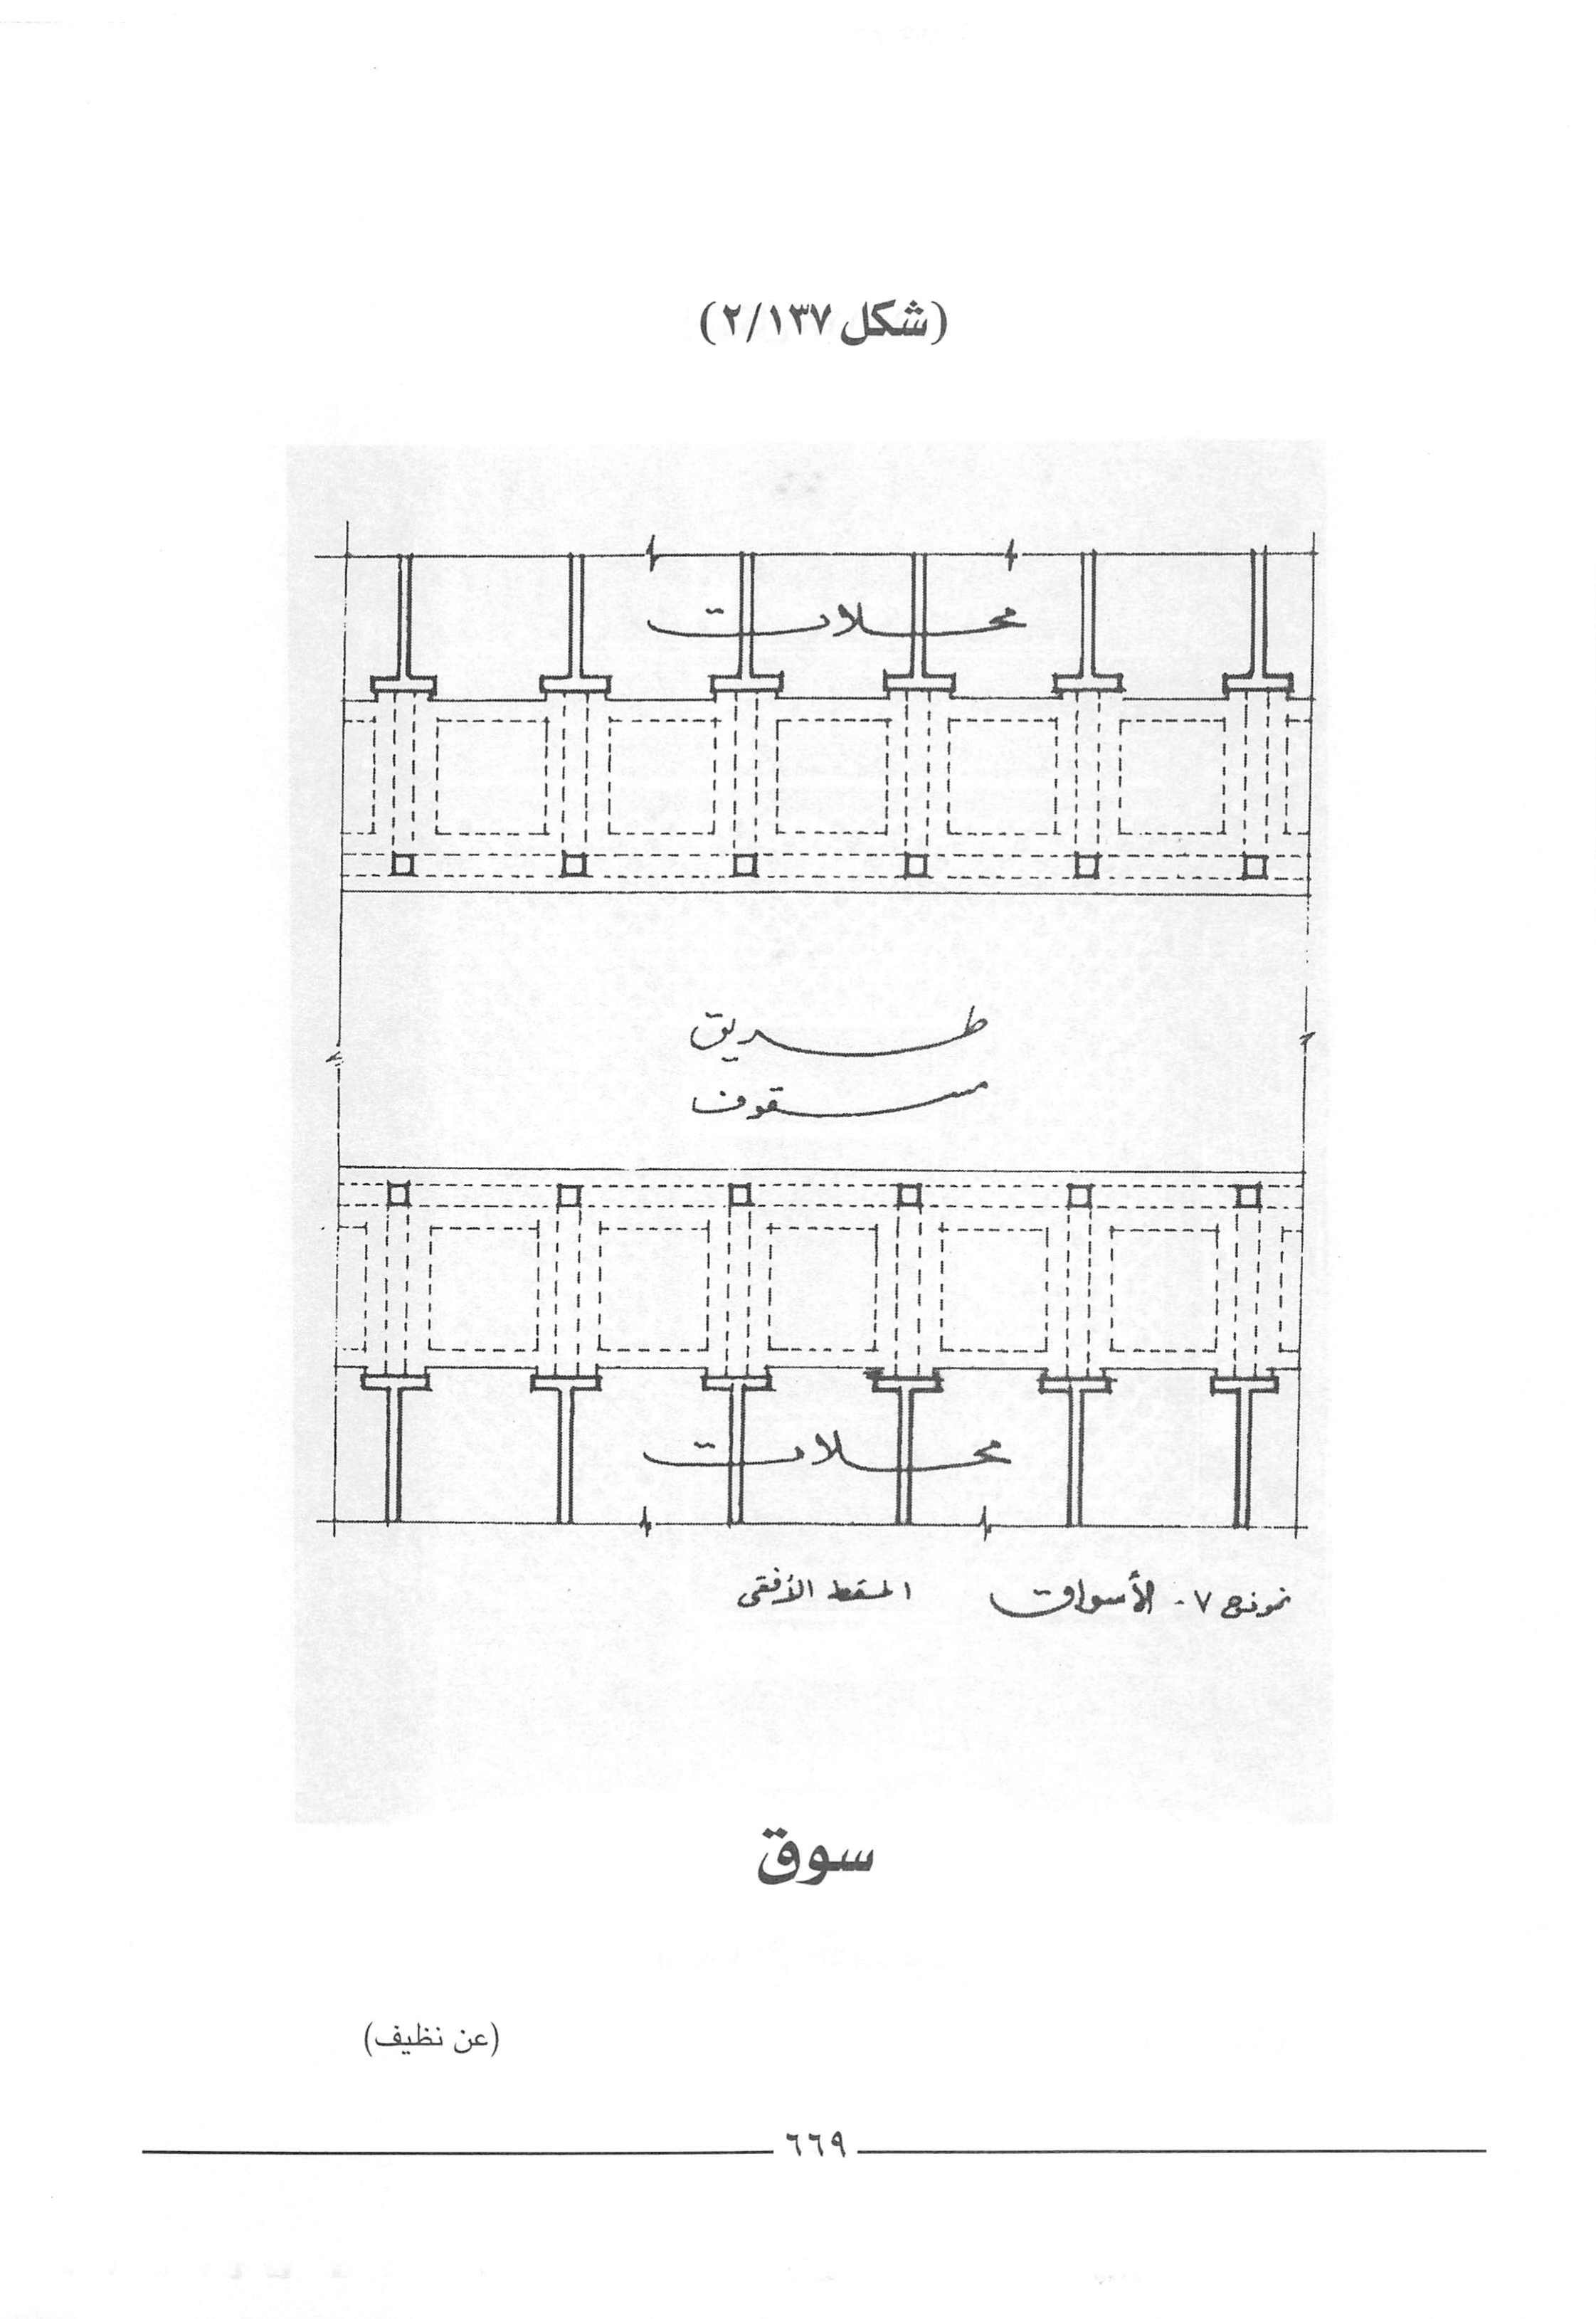 (شكل ٢/١٣٧)
محلات
طريق
مسقوف
محلات
نموذج ٧- الأسواق المسقط الأفقى
سوق
(عن نظيف)
٦٦٩